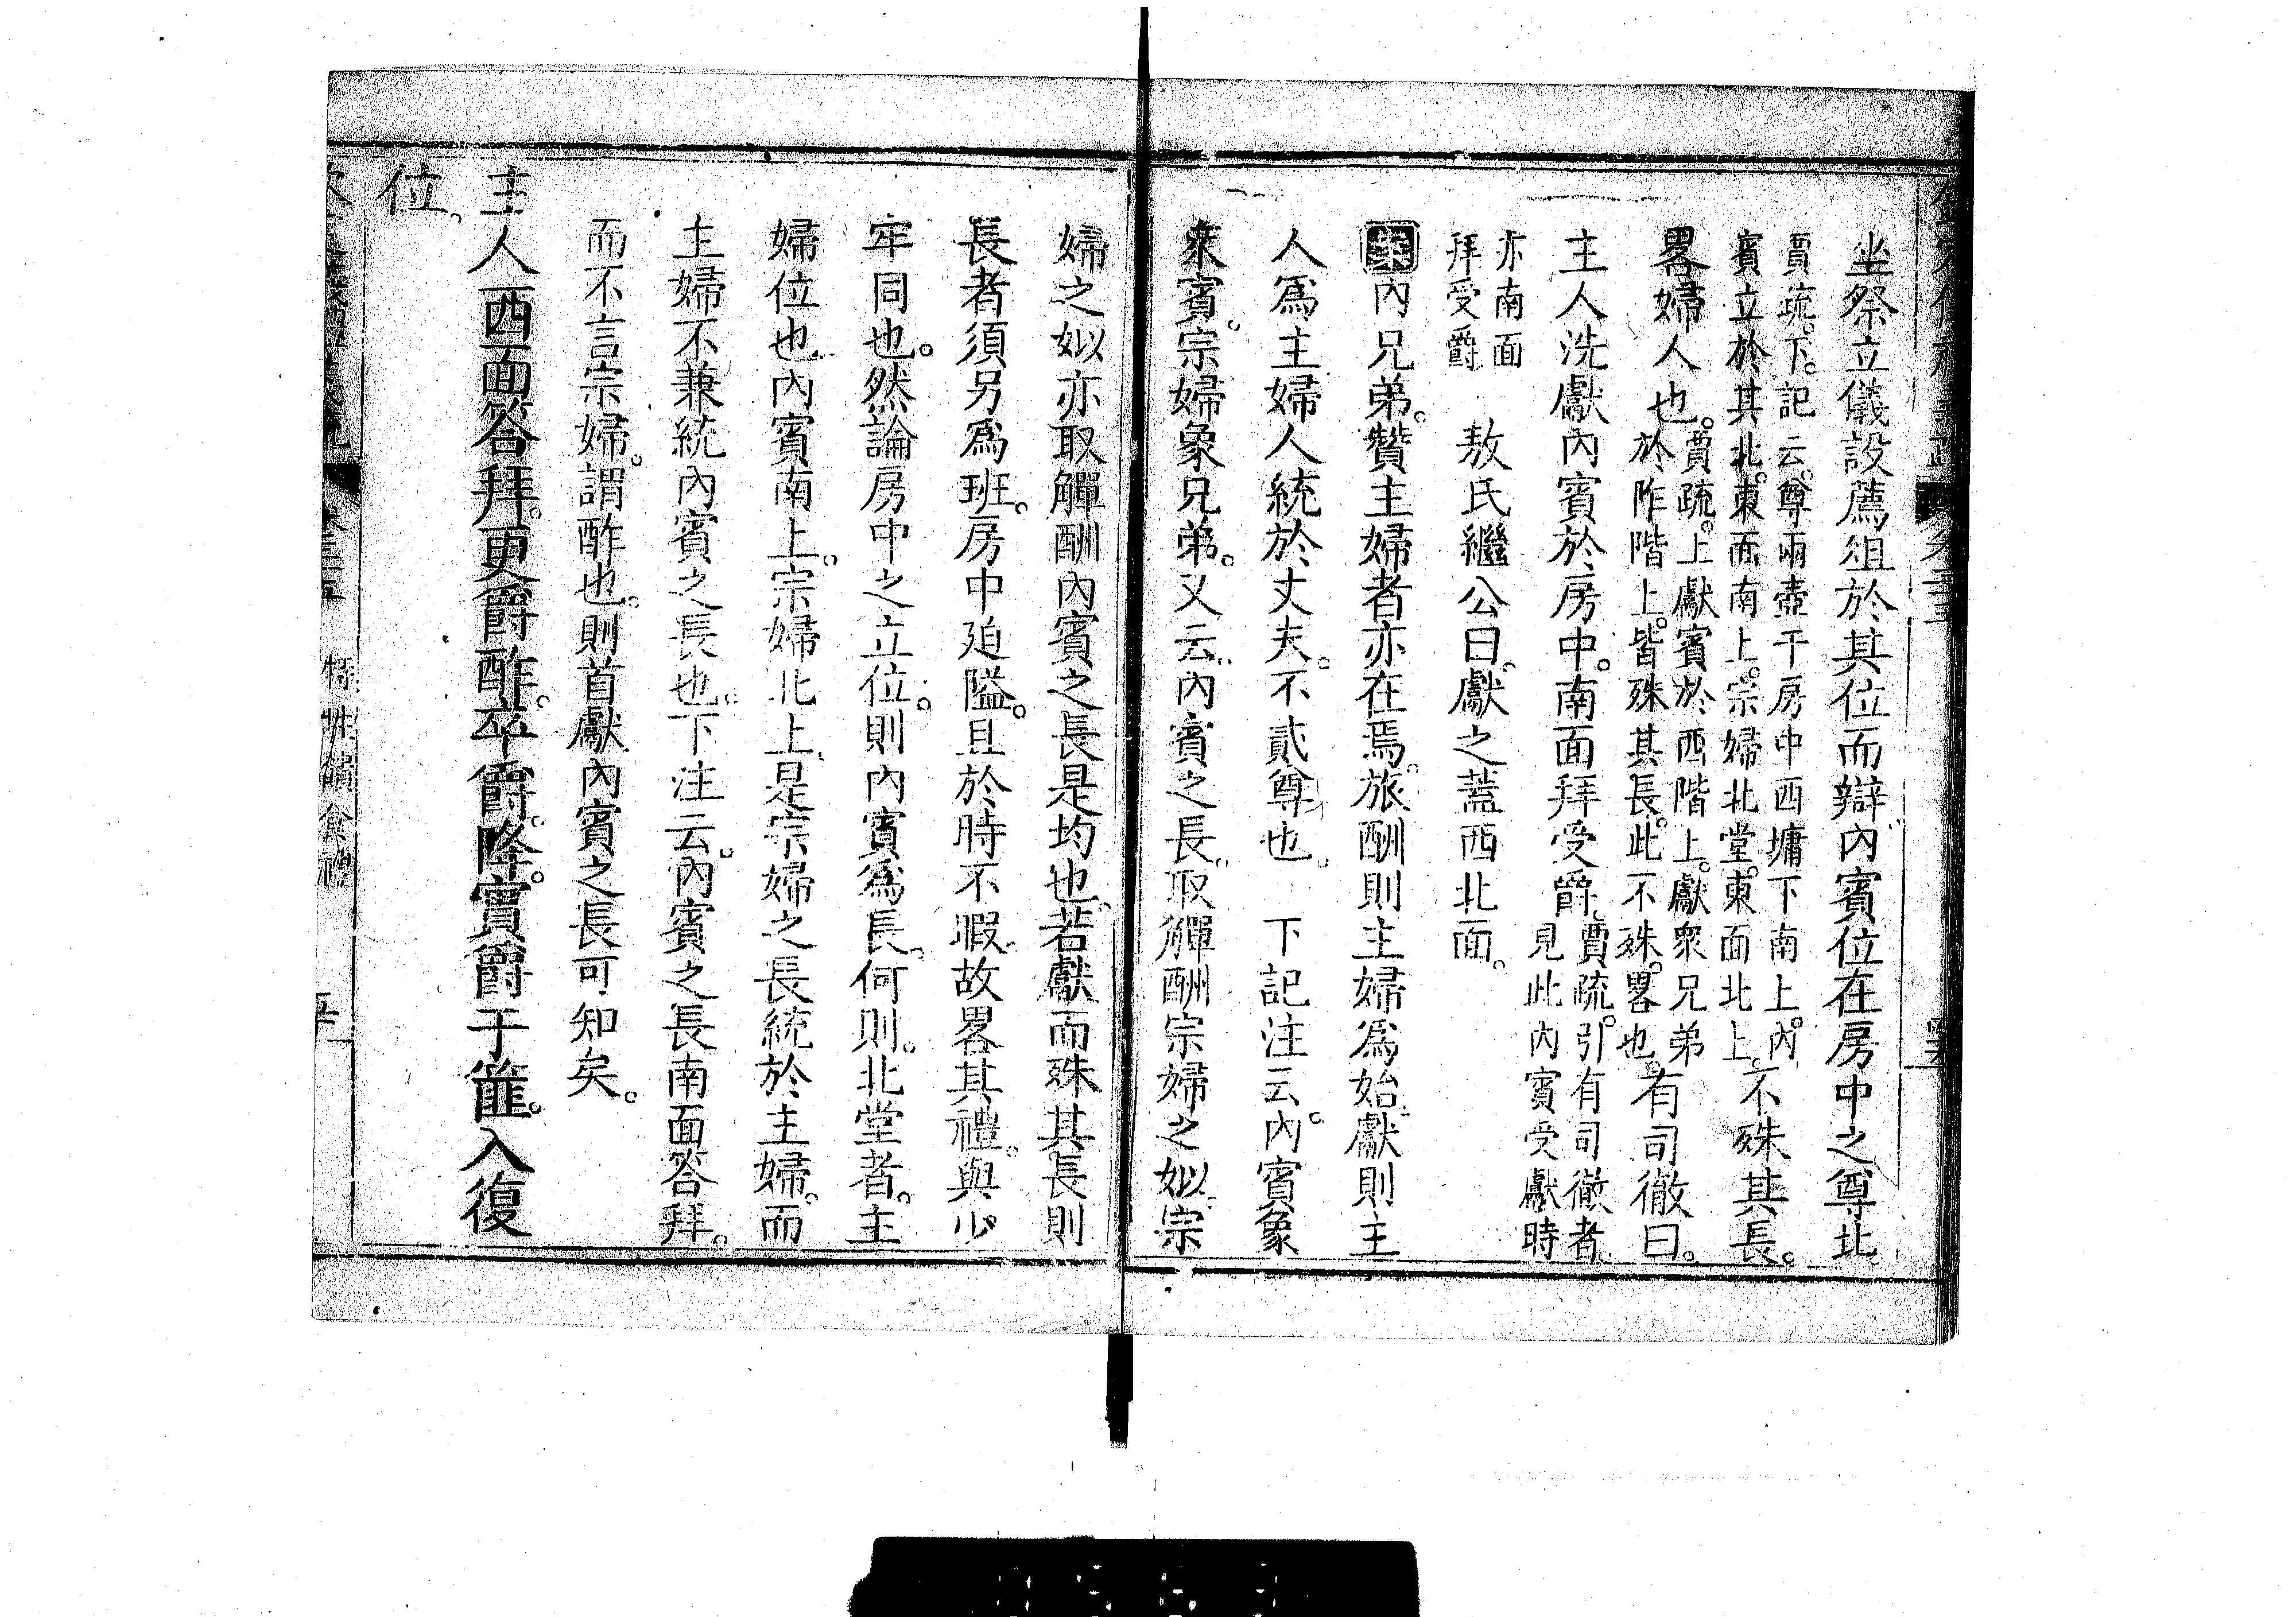 坐祭立儀設薦俎於其位而辯內賓位在房中之尊北。
賈疏。下。記云。尊兩壺于房中西墉下南上。內賓立於其北。東面南上。宗婦北堂。東面北上。不殊其長。
畧婦人也。賈疏。上獻賓於西階上。獻衆兄弟於阼階上。皆殊其長。此不殊。畧也。有司徹曰。
主人洗獻內賓於房中。南面拜受爵。賈疏。引有司徹者。見此內賓受獻時
亦南面拜受爵 敖氏繼公曰。獻之蓋西北面。
案內兄弟。贊主婦者亦在焉。旅酬則主婦爲始。獻則主
人爲主婦人統於丈夫。不貳尊也。 下記注云。內賓象
衆賓。宗婦象兄弟。又云。內賓之長。取觶酬宗婦之姒。宗
婦之姒亦取觶酬內賓之長是均也。若獻而殊其長則
長者須另爲班。房中廹隘。且於時不暇。故畧其禮。與少
牢同也。然論房中之立位。則內賓爲長。何則。北堂者。主
婦位也。內賓南上。宗婦北上。是宗婦之長統於主婦。而
主婦不兼統內賓之長也。下注云。內賓之長南面答拜。
而不言宗婦。謂酢也。則首獻內賓之長可知矣。
主人西面答拜。更爵酢。卒爵。降。實爵于篚。入復
位。
特牲饋食禮